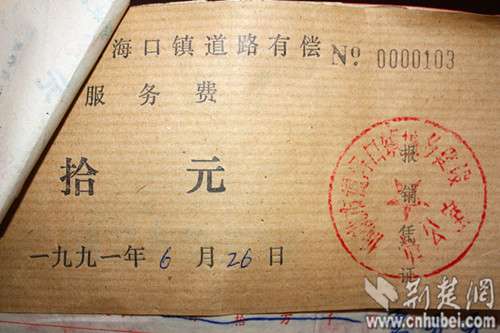 海口镇道路有偿 № 0000103
服务费
拾 元
一九九一年 6 月 26 日
报销凭证
办公室
拾 万 千
荆楚网
www.cnhubei.com